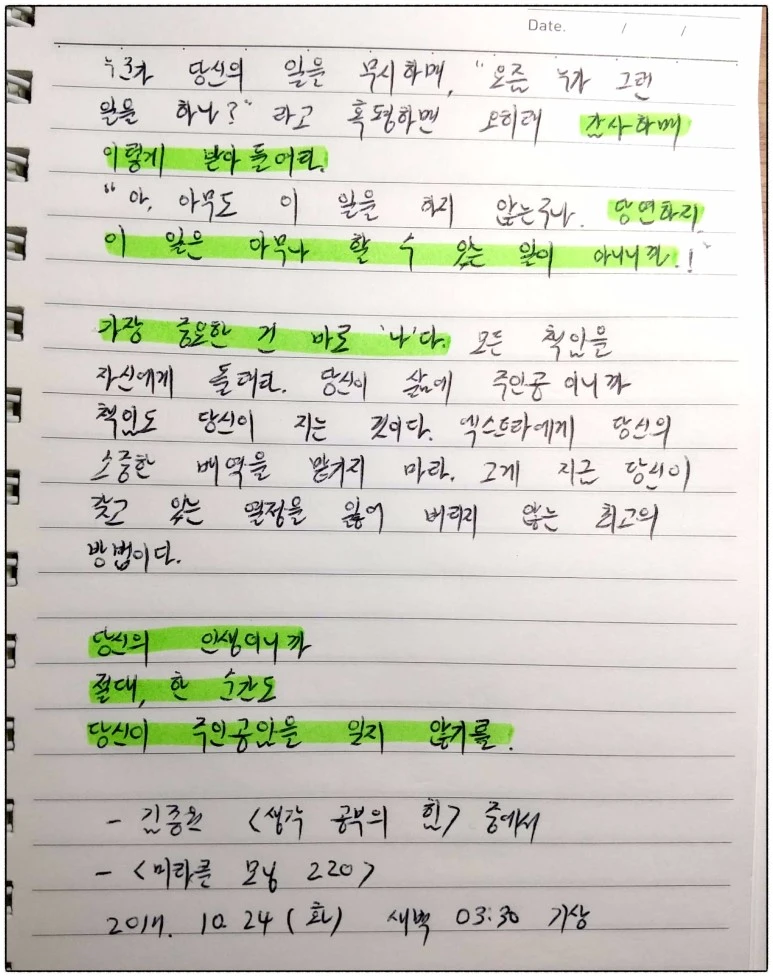 Date. / /
누군가 당신의 일을 무시하며, "요즘 누가 그런
일을 하나?" 라고 혹평하면 오히려 감사하며
이렇게 받아 들여라.
"아, 아무도 이 일을 하지 않는구나. 당연하지.
이 일은 아무나 할 수 있는 일이 아니니까.!"
가장 중요한 건 바로 '나'다. 모든 책임을
자신에게 돌려라. 당신이 삶에 주인공이니까
책임도 당신이 지는 것이다. 엑스트라에게 당신의
소중한 배역을 맡기지 마라. 그게 지금 당신이
갖고 있는 열정을 잃어 버리지 않는 최고의
방법이다.
당신의 인생이니까
절대, 한 순간도
당신이 주인공임을 잊지 않기를.
- 김종원 <생각 공부의 힘> 중에서
- <미라클 모닝 220>
2017. 10. 24 (화) 새벽 03:30 기상